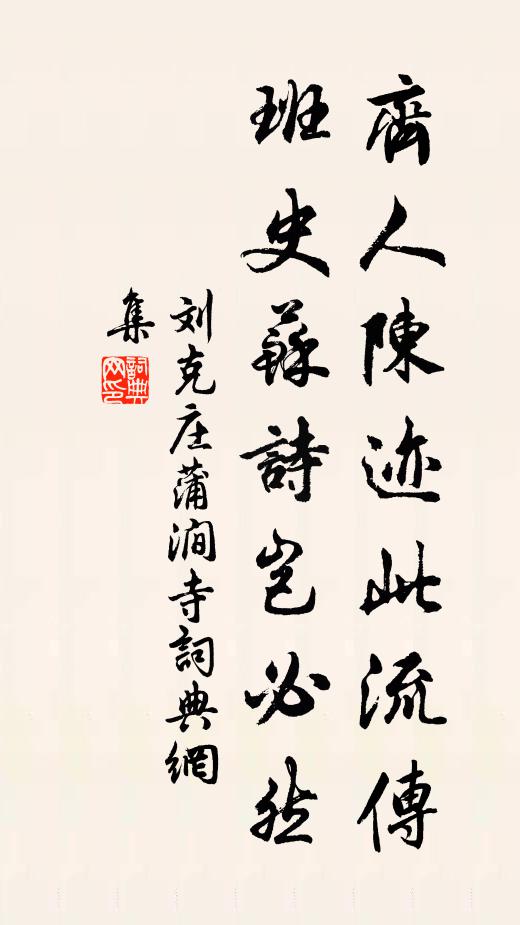 齊人陳迹此流傳
班史蘇詩岂必然
刘克庄蒲澗寺詞典網
集
詞典网印